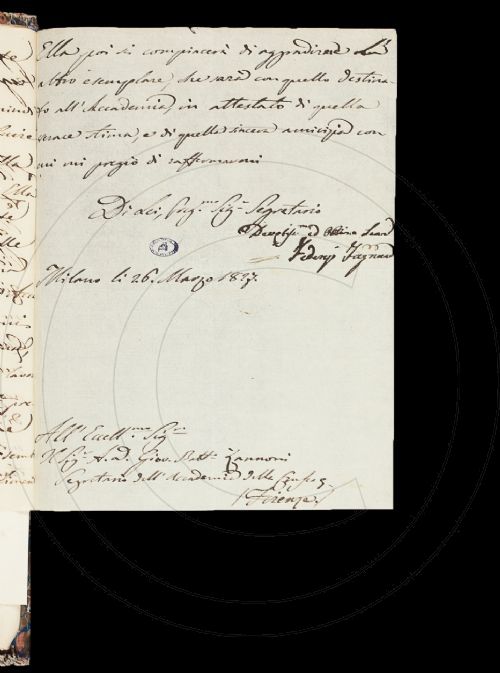 Ella poi si compiacerà di aggradirne
altro esemplare, che sarà con quello destina-
to all'Accademia, in attestato di quella
verace stima, e di quella sincera amicizia con
cui mi pregio di raffermarmi
Di Lei, Preg.mo Sig.r Segretario
Devotis.o ed
Federigo Fagnani
Milano li 26. Marzo 1827.
All' Eccell.mo Sig.r
Il Sig.r Ab. Giov. Batt. Zannoni
Segretario dell'Accademia della Crusca
Firenze